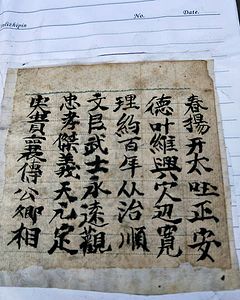 No. Date.
春揚开太吐正安
德叶維興穴边寬
理約百年从治順
文臣武士永遠觀
忠孝傑義天元定
貴襄傳公卿相